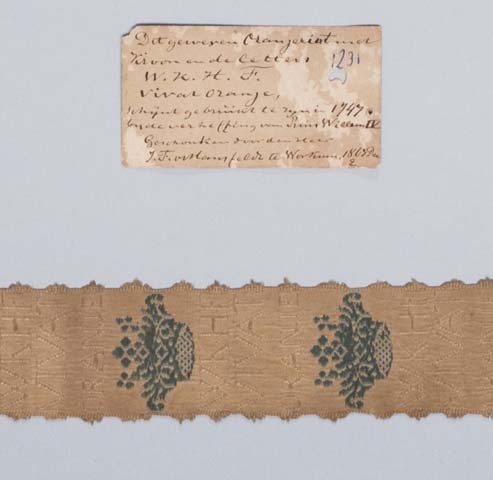 Dit geweven Oranjelint met
Kroon en de letters
1231
W. K. H. F.
Vivat Oranje,
schijnt gebruikt te zijn in 1747.
bij de verheffing van Prins Willem IV
Geschonken door den Heer
J. F. te Workum, 1868
WKHF
VIVAT
ORANIE